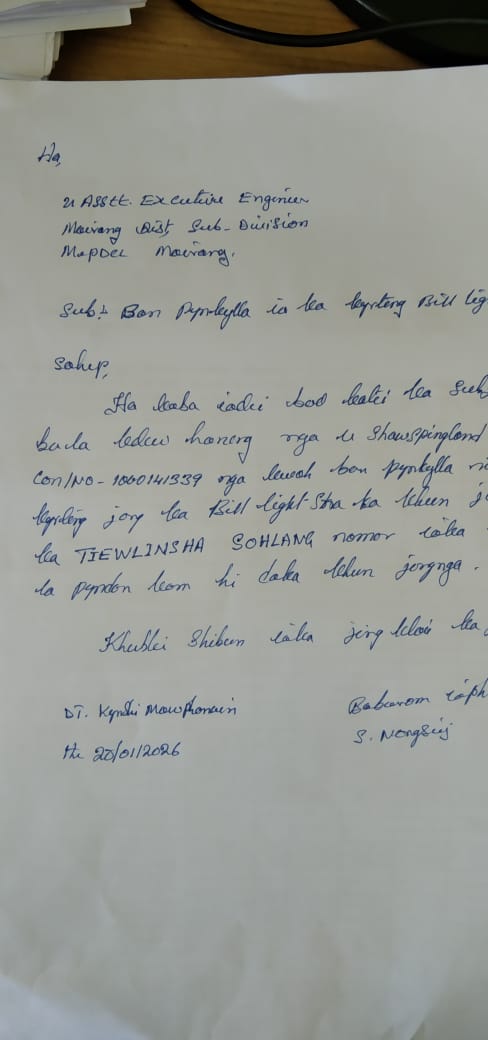 Ha,
u Asstt. Excutive Engineer
Mairang Dist, Sub-Division
MePDCL Mairang.
Sub:- Ban Pynkylla ia ka kyrteng Bill lig
Sahep,
Ha kaba iadei bad katei ka Sub
bala kdew haneng nga u Shawspingland
Con/No- 1000141339 nga kwah ban pynkylla
kyrteng jong ka Bill light sha ka khun
ka TIEWLINSHA SOHLANG nomor iaka
la pyndon kam hi daka khun jongnga.
Khublei Shibun iaka jing
DT. Kyndi
the 20/01/2026
Babarom
S. Nongsiej